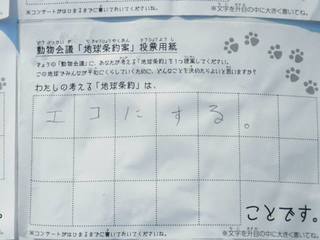 ※コンサートがはじまるまでに書いておいてくださいね。
※文字を升目の中に大きく書いてね。
動物会議「地球条約案」投票用紙
きょうの「動物会議」に、あなたが考える「地球条約」を1つ提案してください。
この地球でみんなが平和にくらしていくために、どんなことを決めたらよいと思いますか？
わたしの考える「地球条約」は、
エコにする。
ことです。
※コンサートがはじまるまでに書いておいてくださいね。
※文字を升目の中に大きく書いてね。